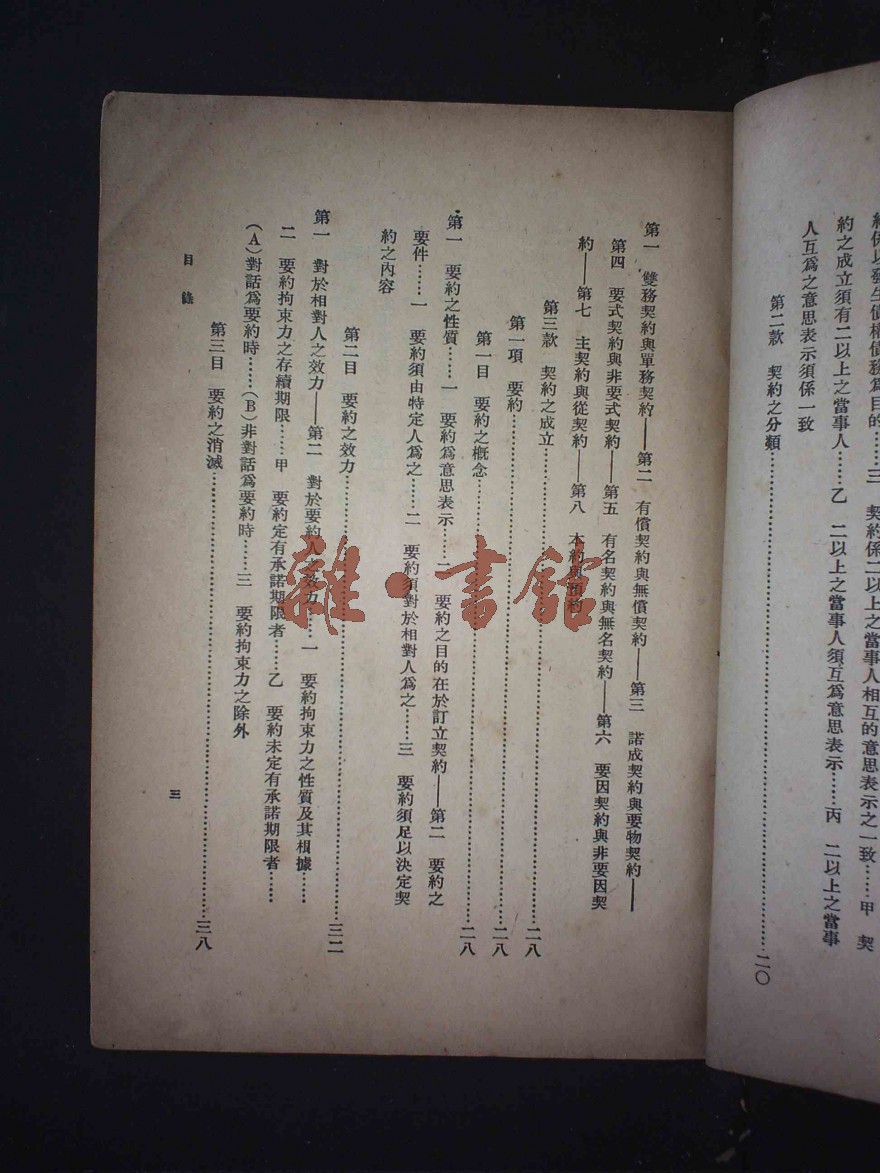 約係以發生債權債務爲目的……三　契約係二以上之當事人相互的意思表示之一致……甲　契
約之成立須有二以上之當事人……乙　二以上之當事人須互爲意思表示……丙　二以上之當事
人互爲之意思表示須係一致
第二款　契約之分類……二〇
第一　雙務契約與單務契約——第二　有償契約與無償契約——第三　諾成契約與要物契約——
第四　要式契約與非要式契約——第五　有名契約與無名契約——第六　要因契約與非要因契
約——第七　主契約與從契約——第八　本約與預約
第三款　契約之成立……二八
第一項　要約……二八
第一目　要約之概念……二八
第一　要約之性質……一　要約爲意思表示……二　要約之目的在於訂立契約——第二　要約之
要件……一　要約須由特定人爲之……二　要約須對於相對人爲之……三　要約須足以決定契
約之內容
第二目　要約之效力……三二
第一　對於相對人之效力——第二　對於要約人之效力……一　要約拘束力之性質及其根據……
二　要約拘束力之存續期限……甲　要約定有承諾期限者……乙　要約未定有承諾期限者……
(A)對話爲要約時……(B)非對話爲要約時……三　要約拘束力之除外
第三目　要約之消滅……三八
目錄
三
雜·書館